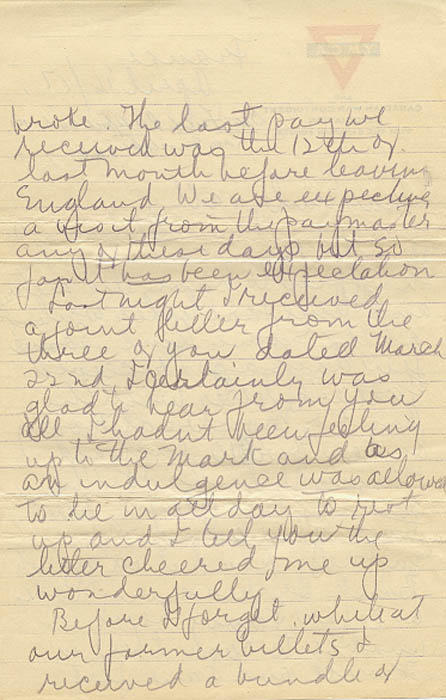 broke. The last pay we
received was the 12th of
last month before leaving
England. We are expecting
a visit from the paymaster
any of these days but so
far it has been expectation
Last night I received
a joint letter from the
three of you dated March
22nd. I certainly was
glad to hear from you
all I hadn't been feeling
up to the mark and as
an indulgence was allowed
to lie in all day to rest
up and I tell you the
letter cheered me up
wonderfully
Before I forget, while at
our former billets I
received a bundle of